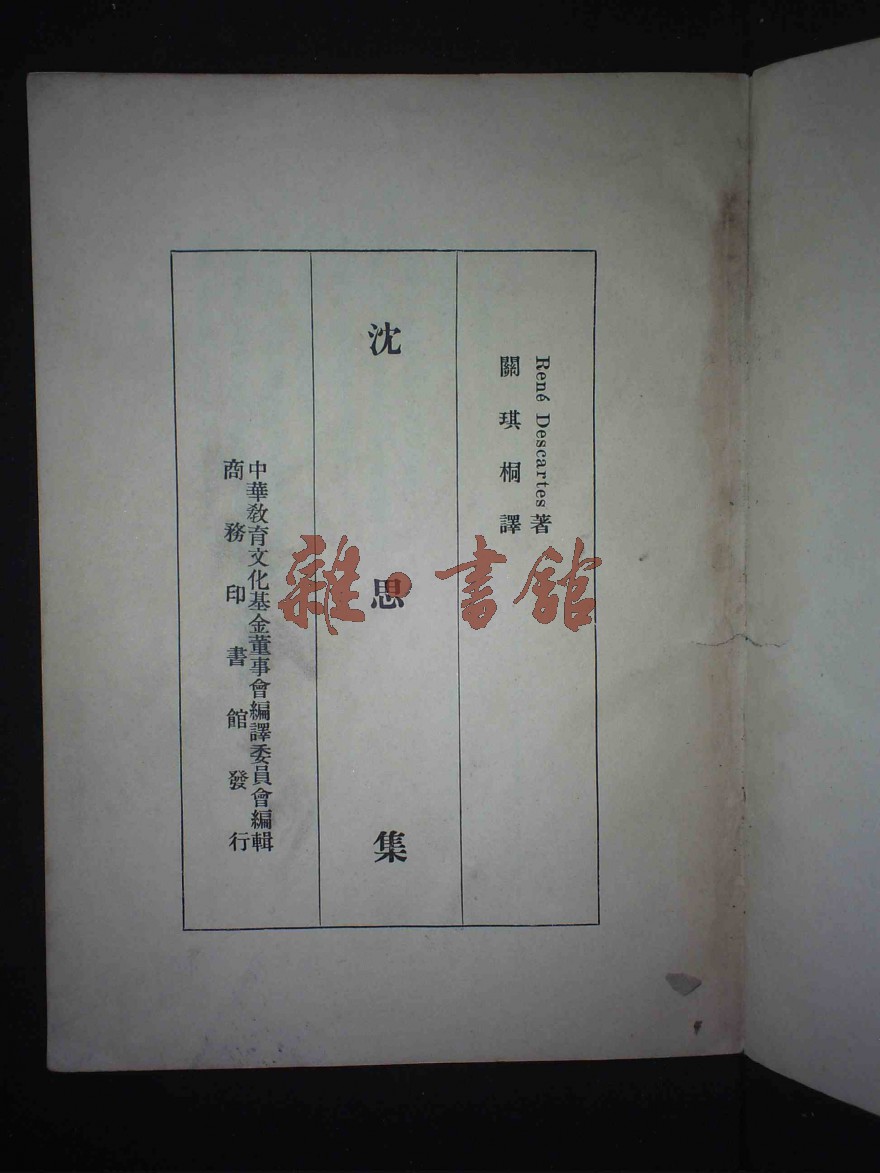 René Descartes著
關琪桐譯
沈思集
中華教育文化基金董事會編譯委員會編輯
商務印書館發行
雜·書館